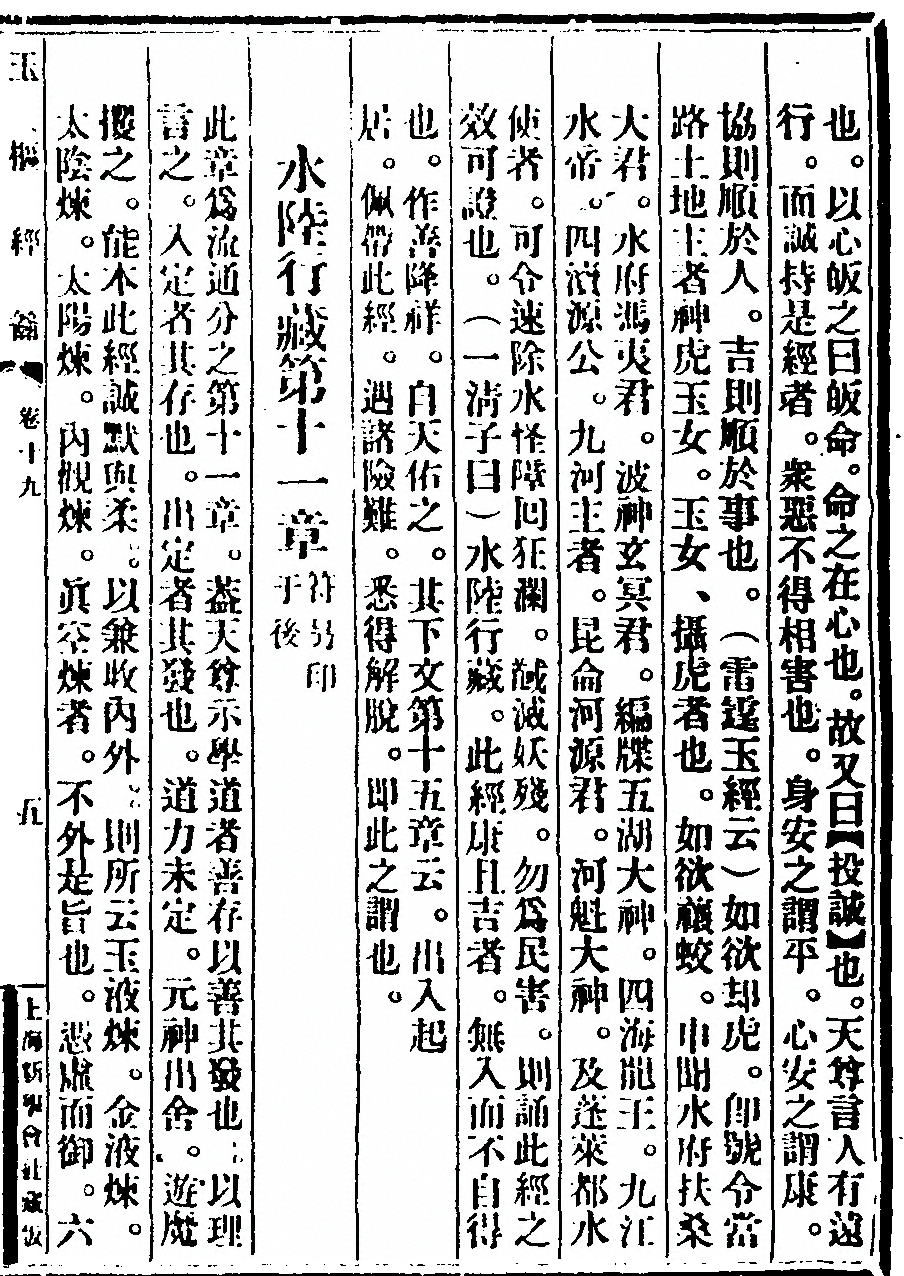 也。以心皈之曰皈命。命之在心也。故又曰【投誠】也。天尊言入有遠
行。而誠持是經者。衆惡不得相害也。身安之謂平。心安之謂康。
協則順於人。吉則順於事也。（雷霆玉經云）如欲却虎。卽號令當
路土地主者神虎玉女。玉女、攝虎者也。如欲禳蛟。申聞水府扶桑
大君。水府馮夷君。波神玄冥君。編牒五湖大神。四海龍王。九江
水帝。四瀆源公。九河主者。昆侖河源君。河魁大神。及蓬萊都水
使者。可令速除水怪障回狂瀾。馘滅妖殘。勿爲民害。則誦此經之
效可證也。（一淸子曰）水陸行藏。此經康且吉者。無入而不自得
也。作善降祥。自天佑之。其下文第十五章云。出入起
居。佩帶此經。遇諸險難。悉得解脫。卽此之謂也。
水陸行藏第十一章
符另印
于後
此章爲流通分之第十一章。葢天尊示學道者善存以善其發也。以理
言之。入定者其存也。出定者其發也。道力未定。元神出舍。遊魔
攖之。能本此經誠默與柔。以兼收內外。則所云玉液煉。金液煉。
太陰煉。太陽煉。內觀煉。眞空煉者。不外是旨也。憑虛而御。六
玉樞經籥
卷十九
五
上海新學會社藏板